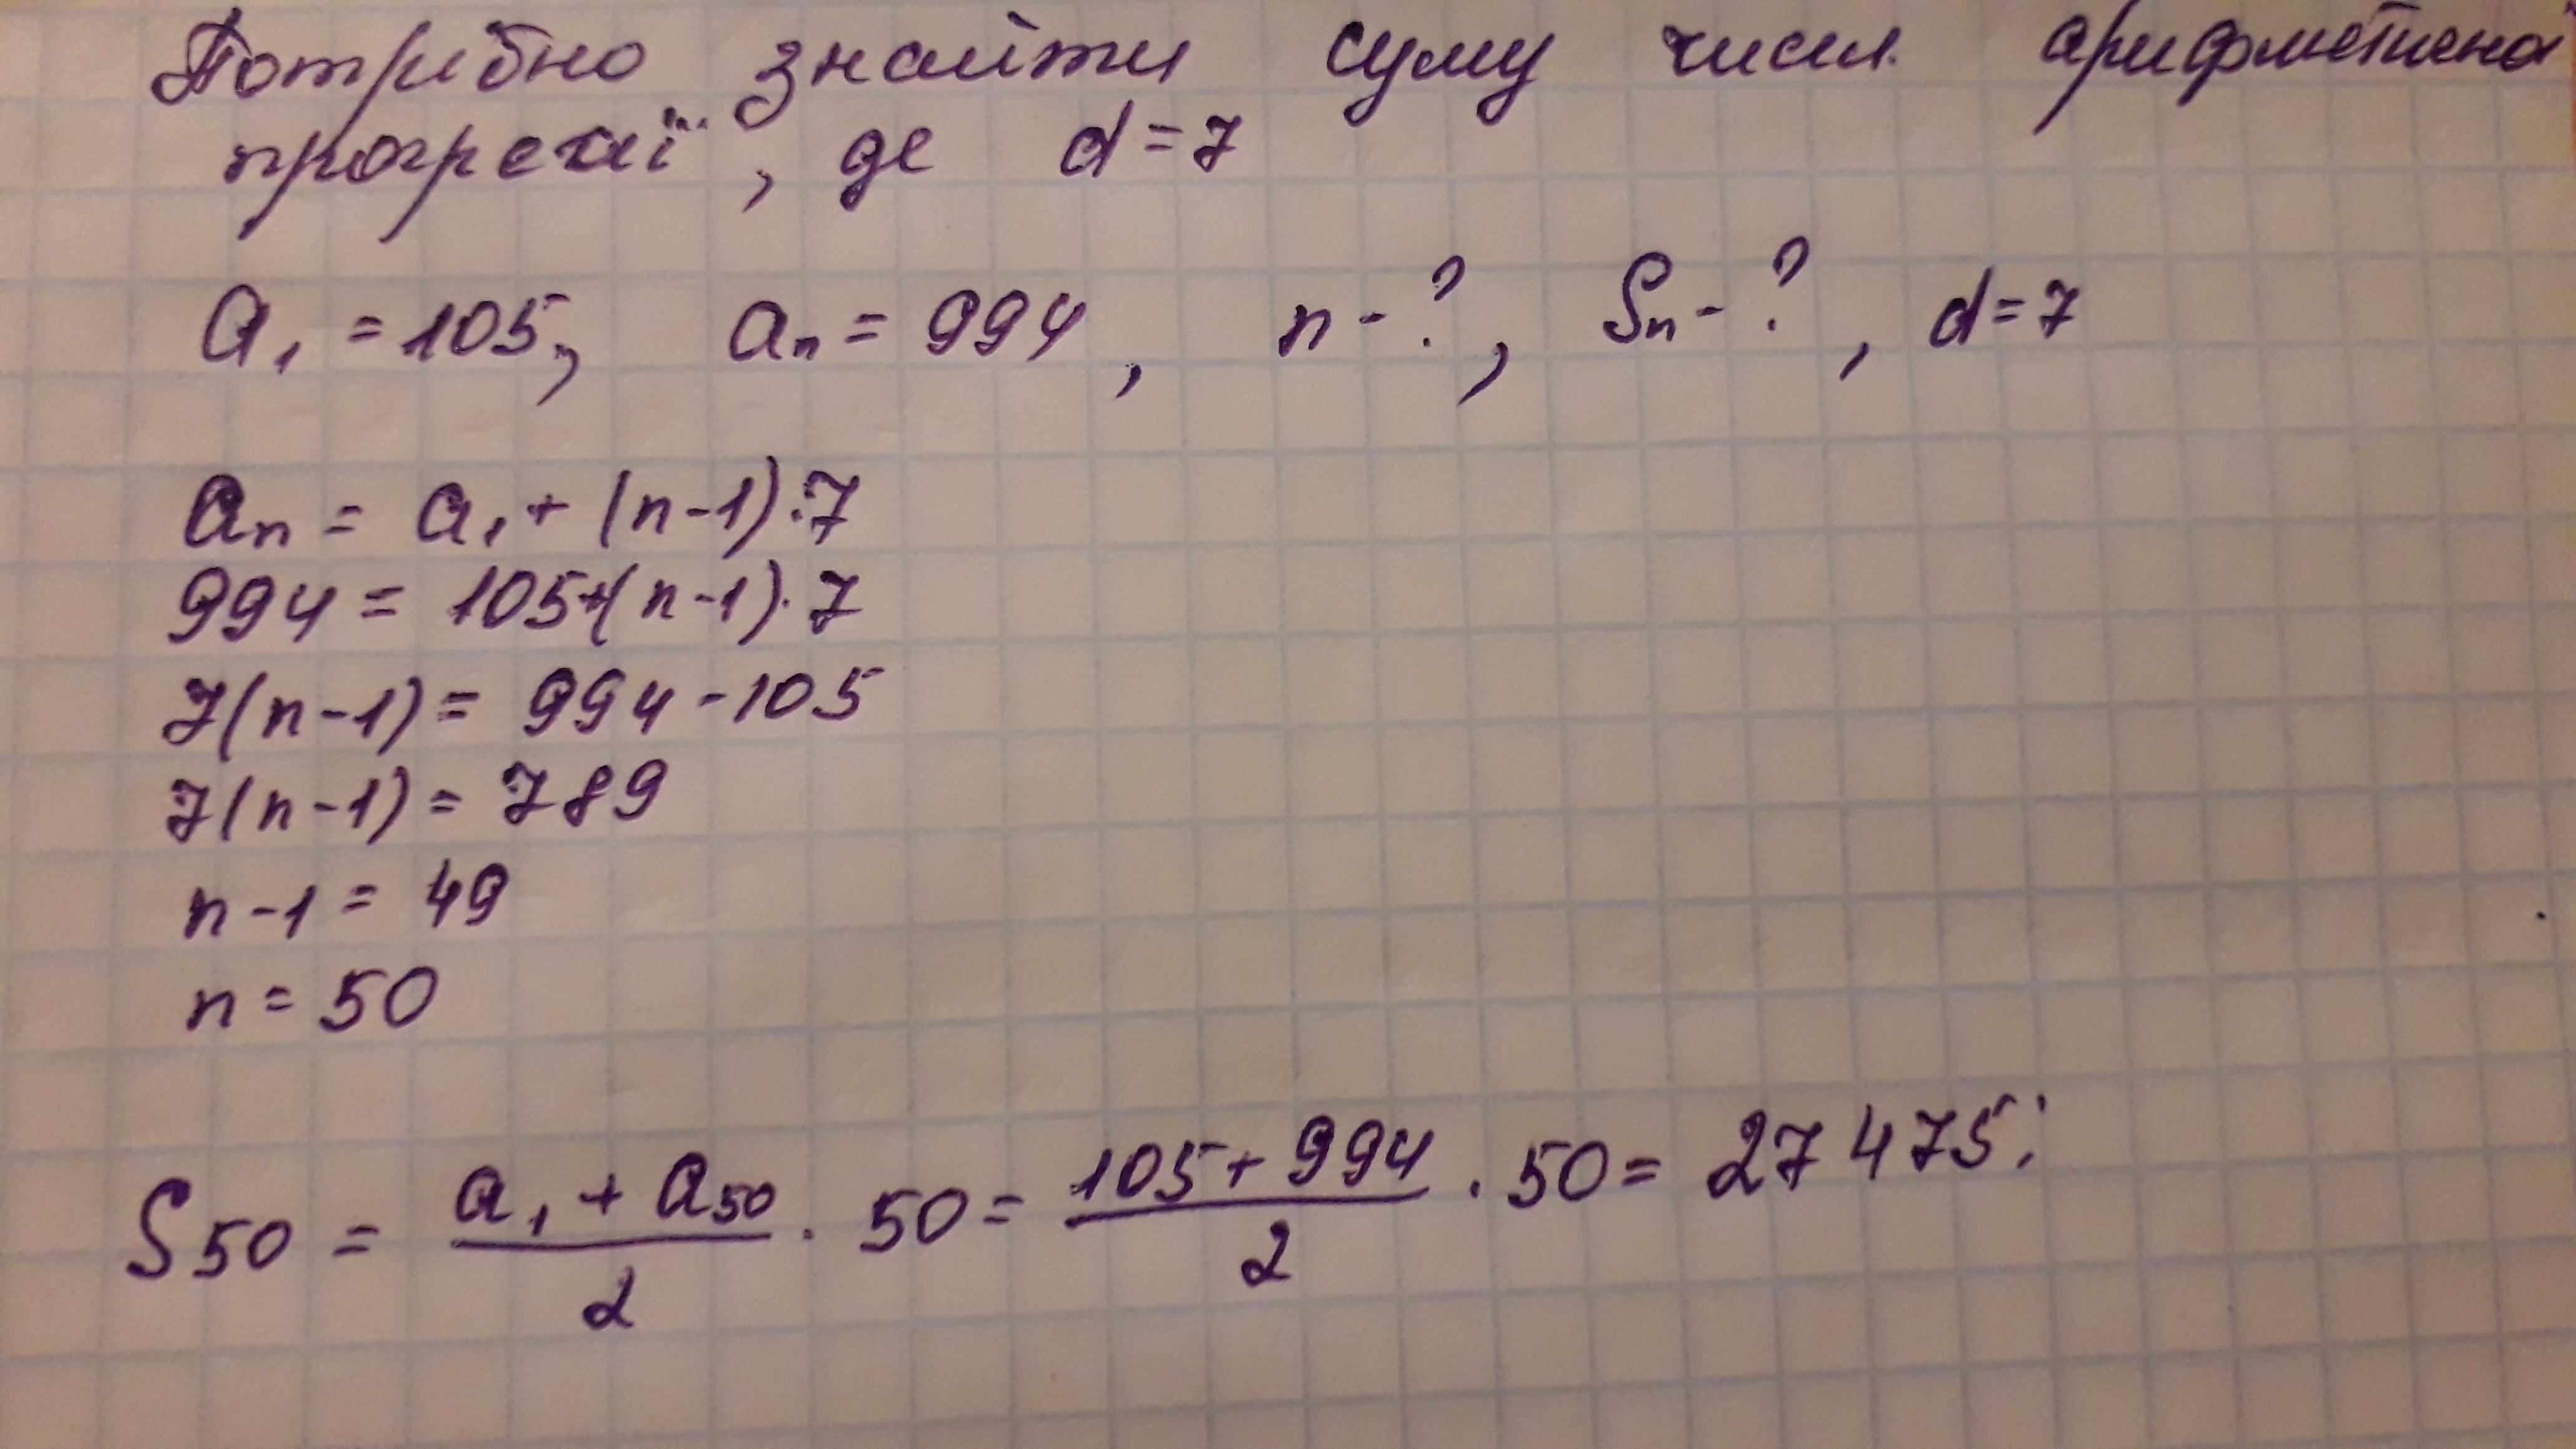 Потрібно знайти суму чисел арифметична
прогресії, де d=7
a₁ = 105, aₙ = 994, n-?, Sₙ-?, d=7
aₙ = a₁ + (n-1)·7
994 = 105+(n-1)·7
7(n-1) = 994 - 105
7(n-1) = 789
n-1 = 49
n = 50
S₅₀ = (a₁ + a₅₀)/2 · 50 = (105 + 994)/2 · 50 = 27 475;